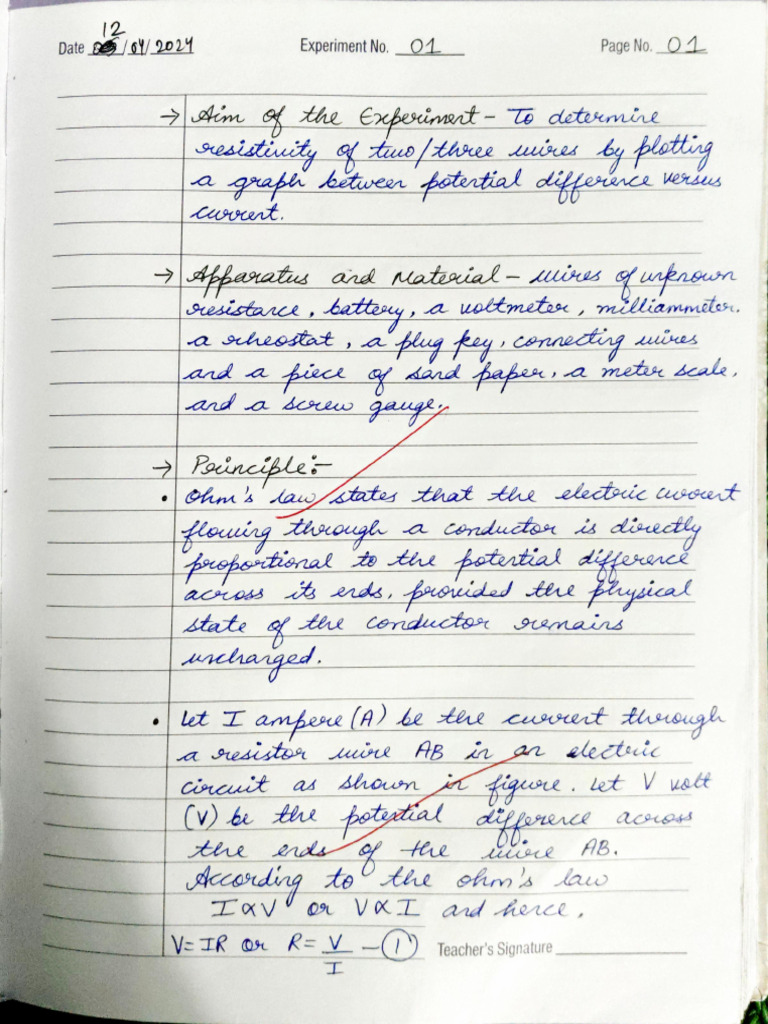 12
Date /04/2024 Experiment No. 01 Page No. 01
→ Aim of the Experiment - To determine
resistivity of two/three wires by plotting
a graph between potential difference versus
current.
→ Apparatus and Material - wires of unknown
resistance, battery, a voltmeter, milliammeter,
a rheostat, a plug key, connecting wires
and a piece of sand paper, a meter scale,
and a screw gauge.
→ Principle:-
• Ohm's law states that the electric current
flowing through a conductor is directly
proportional to the potential difference
across its ends, provided the physical
state of the conductor remains
unchanged.
• Let I ampere (A) be the current through
a resistor wire AB in an electric
circuit as shown in figure. Let V volt
(V) be the potential difference across
the ends of the wire AB.
According to the ohm's law
I ∝ V or V ∝ I and hence,
V = IR or R = V/I - ①
Teacher's Signature